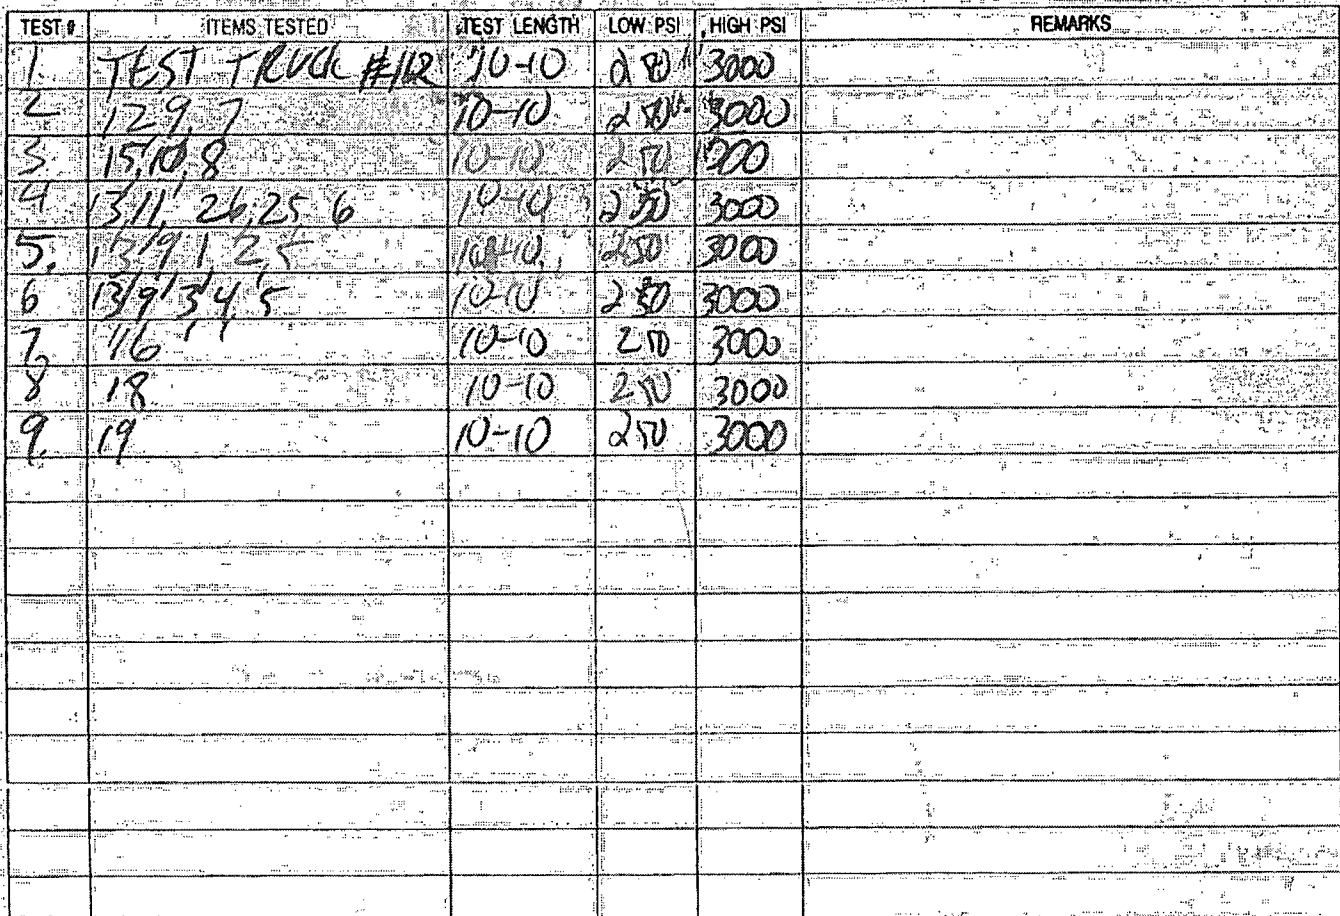 TEST # ITEMS TESTED TEST LENGTH LOW PSI HIGH PSI REMARKS
1. TEST TRUCK #112 10-10 250 3000
2 12, 9, 7 10-10 250 3000
3. 15, 10, 8 10-10 250
4 13, 11, 26, 25, 6 10-10 250 3000
5. 13, 9, 1, 2, 5 10-10 250 3000
6 13, 9, 3, 4, 5 10-10 250 3000
7. 16 10-10 250 3000
8 18 10-10 250 3000
9. 19 10-10 250 3000